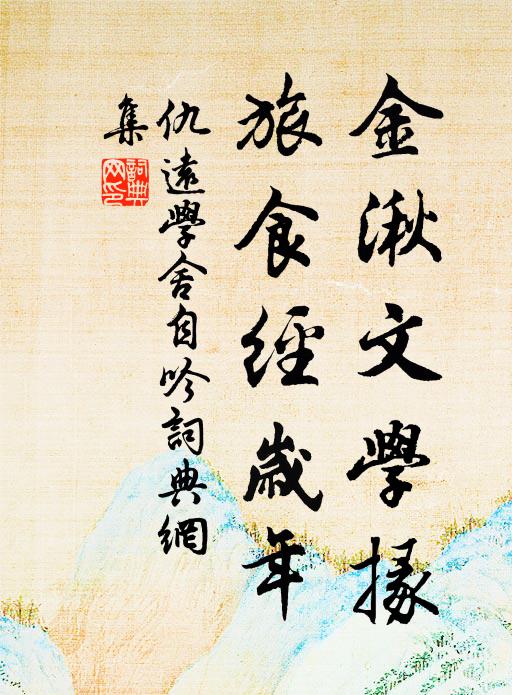 金湫文學掾
旅食經歲年
仇遠學舍自吟詞典網
集
詞典網印